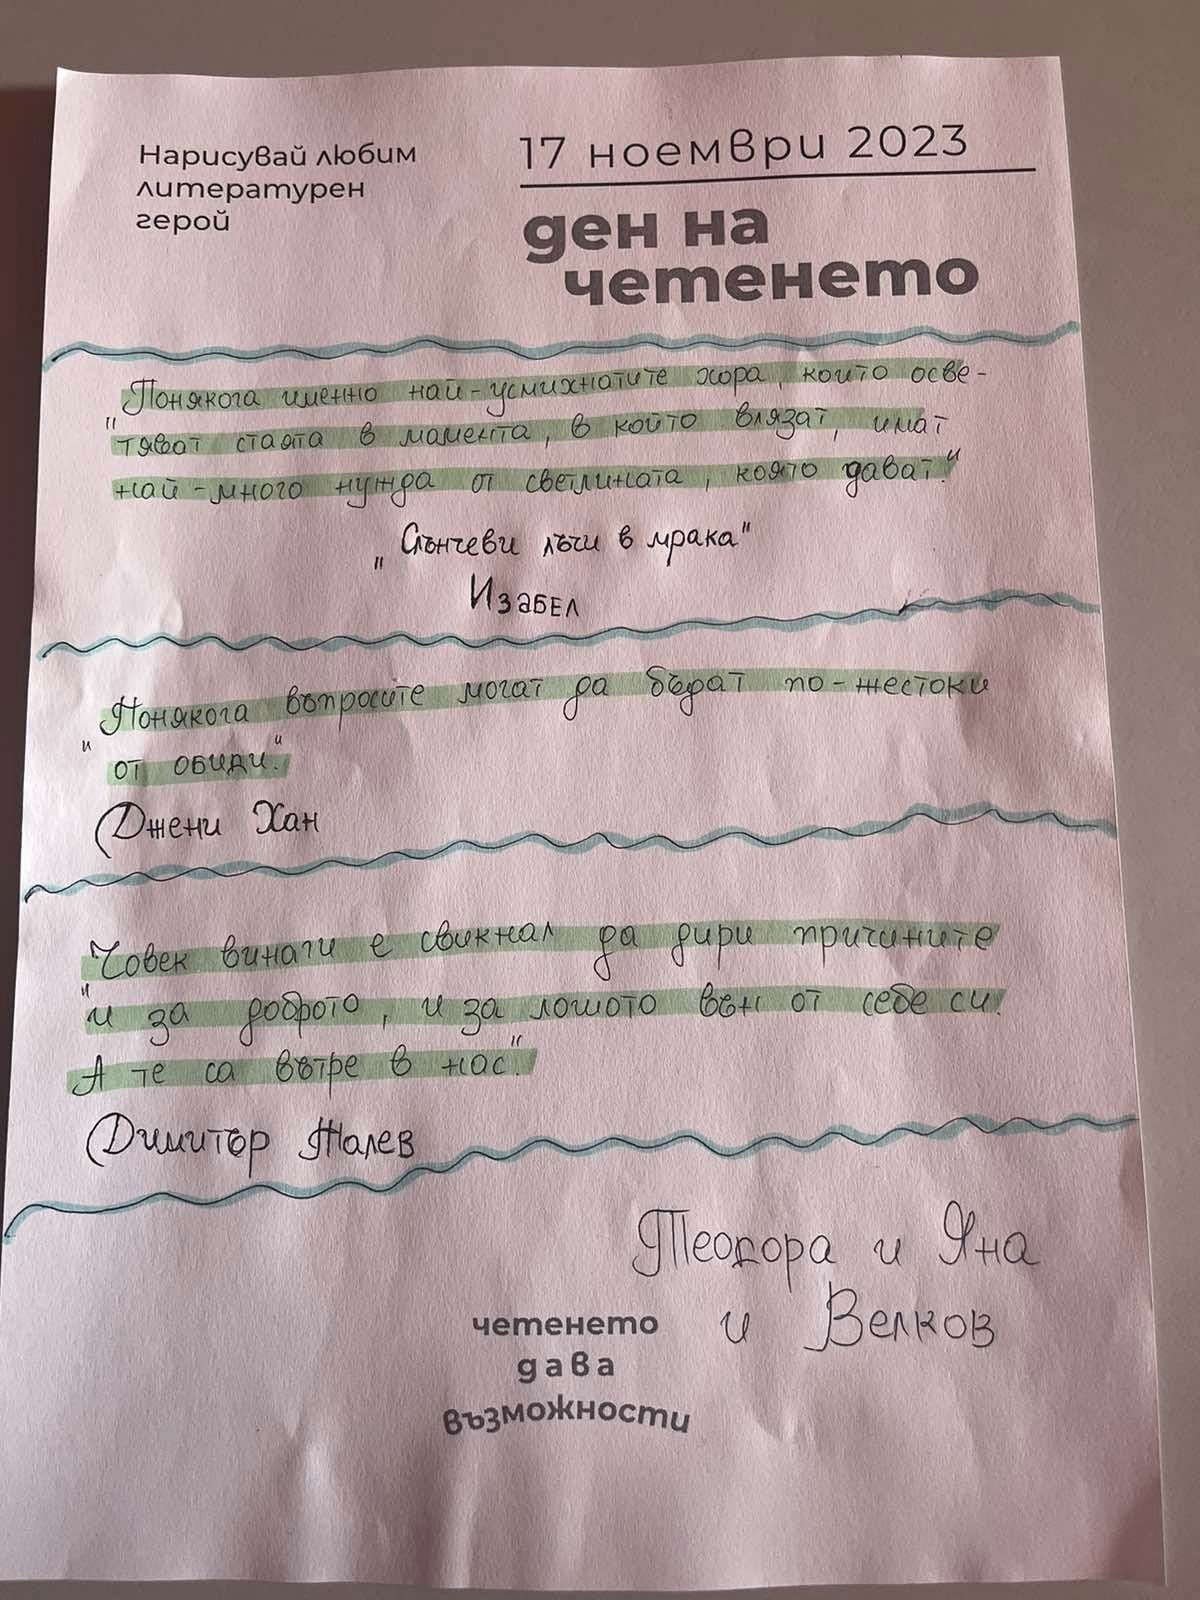 Нарисувай любим
литературен
герой
17 ноември 2023
ден на
четенето
"Понякога именно най-усмихнатите хора, които осве-
тяват стаята в момента, в който влязат, имат
най-много нужда от светлината, която дават."
"Слънчеви лъчи в мрака"
Изабел
"Понякога въпросите могат да бъдат по-жестоки
от обиди."
Джени Хан
"Човек винаги е свикнал да дири причините
и за доброто, и за лошото вън от себе си.
А те са вътре в нас".
Димитър Талев
Теодора и Яна
и Велков
четенето
дава
възможности